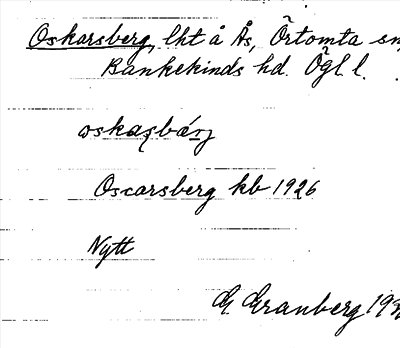 Oskarsberg, lht å Ås, Örtomta sn,
Bankekinds hd. Ögl. l.
oskaʂbárj
Oscarsberg kb 1926
Nytt
G. Granberg